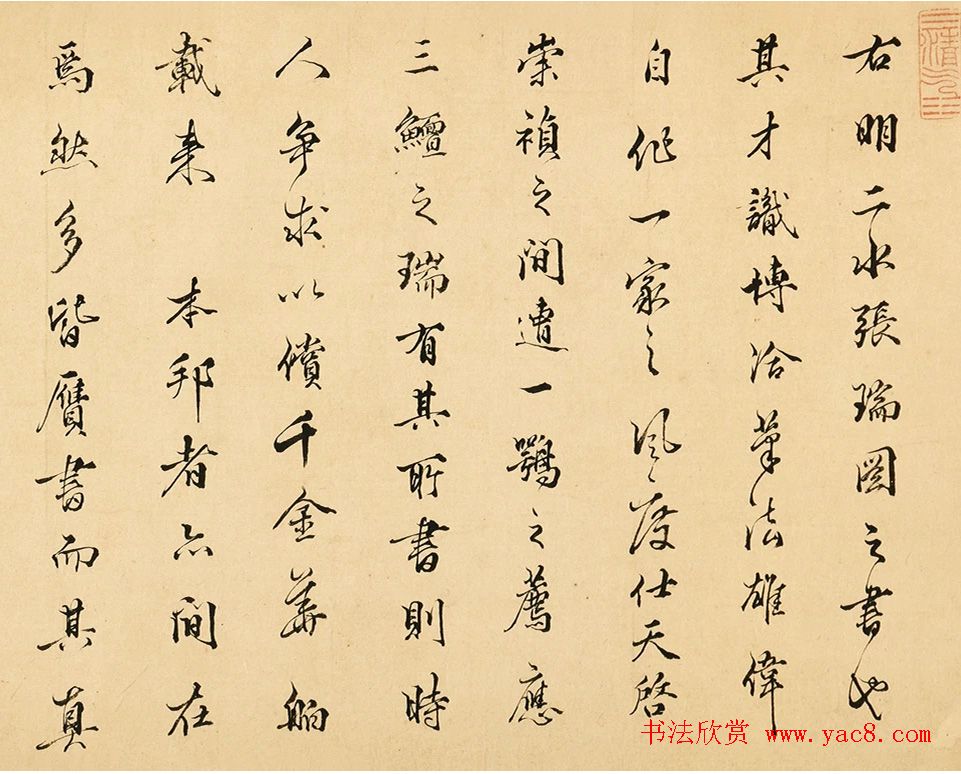 右明二水張瑞圖之書也
其才識博洽筆法雄偉
自作一家之風度仕天啓
崇禎之間遭一鶚之薦應
三鱣之瑞有其所書則時
人争求以償千金華舶
載来 本邦者亦間在
焉然多皆贋書而其真
书法欣赏 www.yac8.com